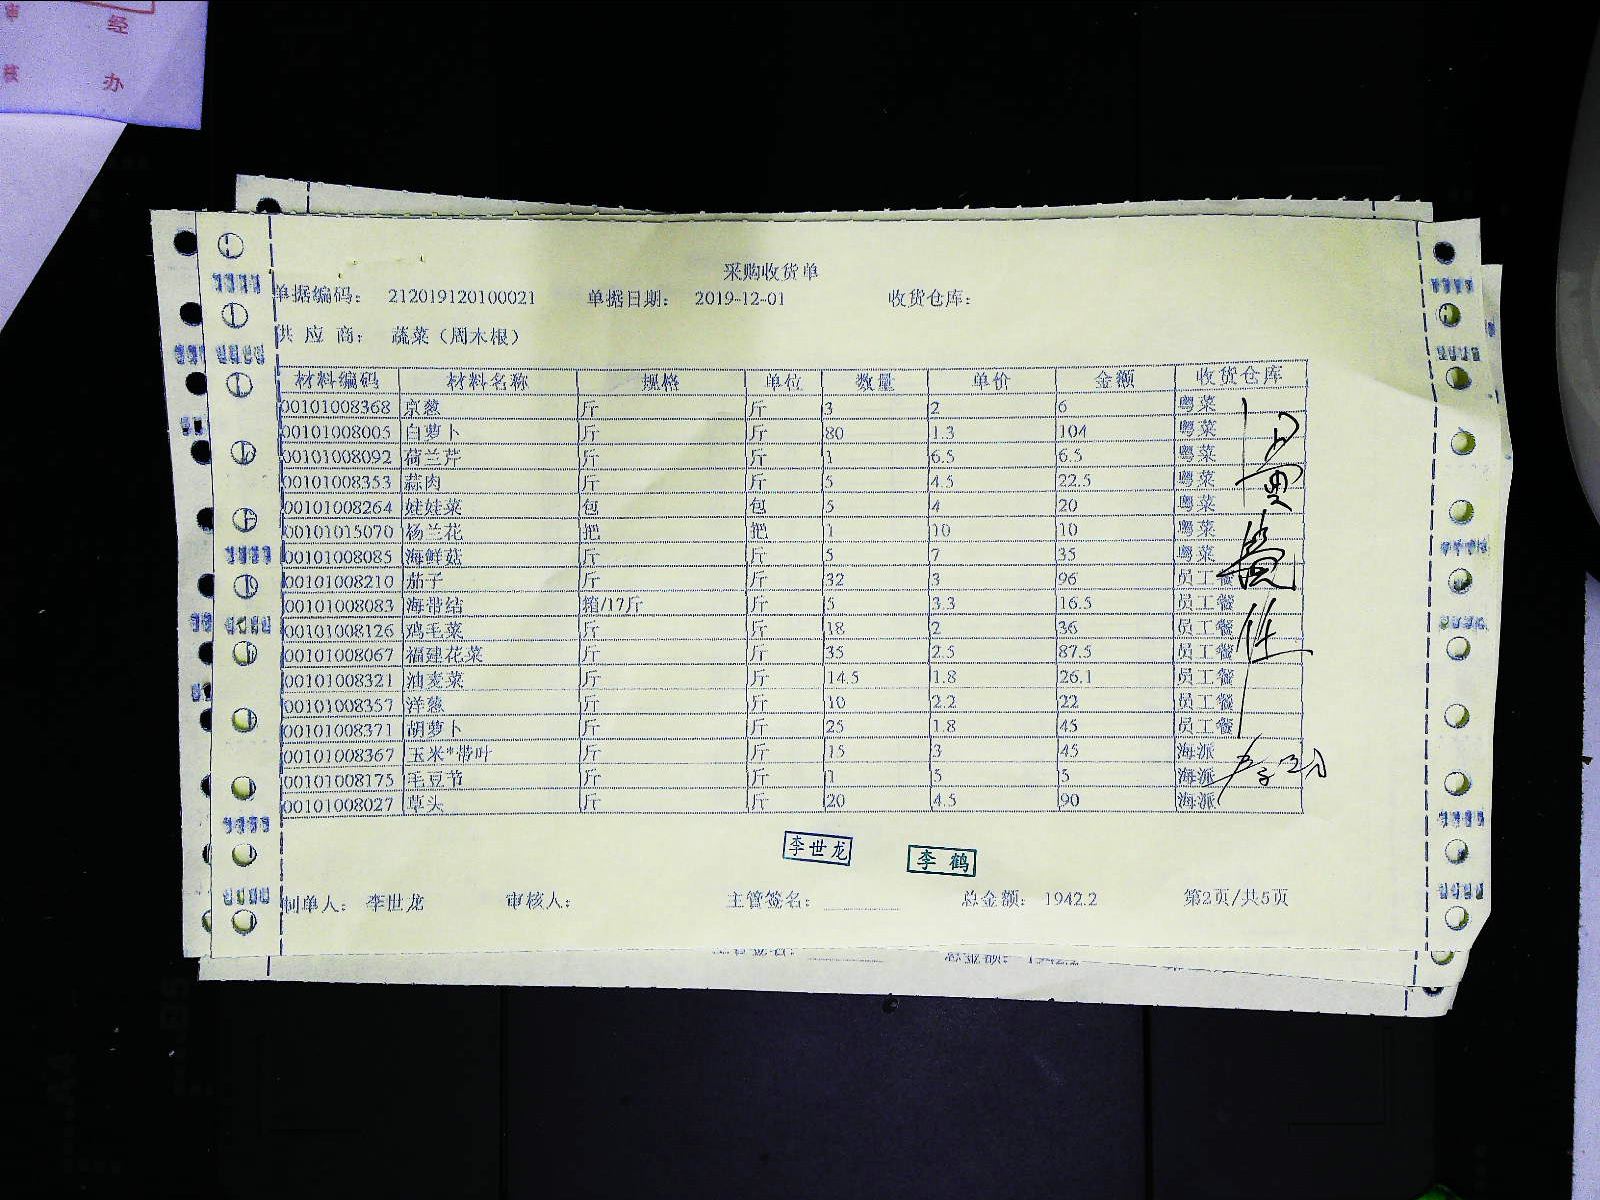 审 经
核 办
采购收货单
单据编码： 212019120100021 单据日期： 2019-12-01 收货仓库：
供 应 商： 蔬菜（周木根）
材料编码 材料名称 规格 单位 数量 单价 金额 收货仓库
00101008368 京葱 斤 斤 3 2 6 粤菜
00101008005 白萝卜 斤 斤 80 1.3 104 粤菜
00101008092 荷兰芹 斤 斤 1 6.5 6.5 粤菜
00101008353 蒜肉 斤 斤 5 4.5 22.5 粤菜
00101008264 娃娃菜 包 包 5 4 20 粤菜
00101015070 杨兰花 把 把 1 10 10 粤菜
00101008085 海鲜菇 斤 斤 5 7 35 粤菜
00101008210 茄子 斤 斤 32 3 96 员工餐
00101008083 海带结 箱/17斤 斤 5 3.3 16.5 员工餐
00101008126 鸡毛菜 斤 斤 18 2 36 员工餐
00101008067 福建花菜 斤 斤 35 2.5 87.5 员工餐
00101008321 油麦菜 斤 斤 14.5 1.8 26.1 员工餐
00101008357 洋葱 斤 斤 10 2.2 22 员工餐
00101008371 胡萝卜 斤 斤 25 1.8 45 员工餐
00101008367 玉米*带叶 斤 斤 15 3 45 海派
00101008175 毛豆节 斤 斤 1 5 5 海派
00101008027 草头 斤 斤 20 4.5 90 海派
李世龙 李鹤
制单人： 李世龙 审核人： 主管签名： 总金额： 1942.2 第2页/共5页